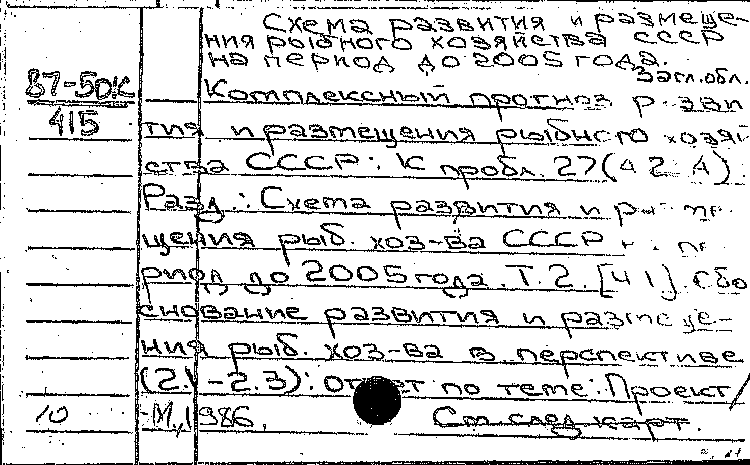 Схема развития и размеще-
ния рыбного хозяйства СССР
на период до 2005 года.
Загл. обл.
87-50К
415
Комплексный прогноз разви
тия и размещения рыбного хозяй
ства СССР: К пробл. 27(42 А).
Разд.: Схема развития и
щения рыб. хоз-ва СССР
риод до 2005 года. Т. 2. [Ч 1]. Обо
снование развития и размеще-
ния рыб. хоз-ва в перспективе
(2.1-2.3): отчет по теме: Проект/
10 -М., 1986.
См. след. карт.